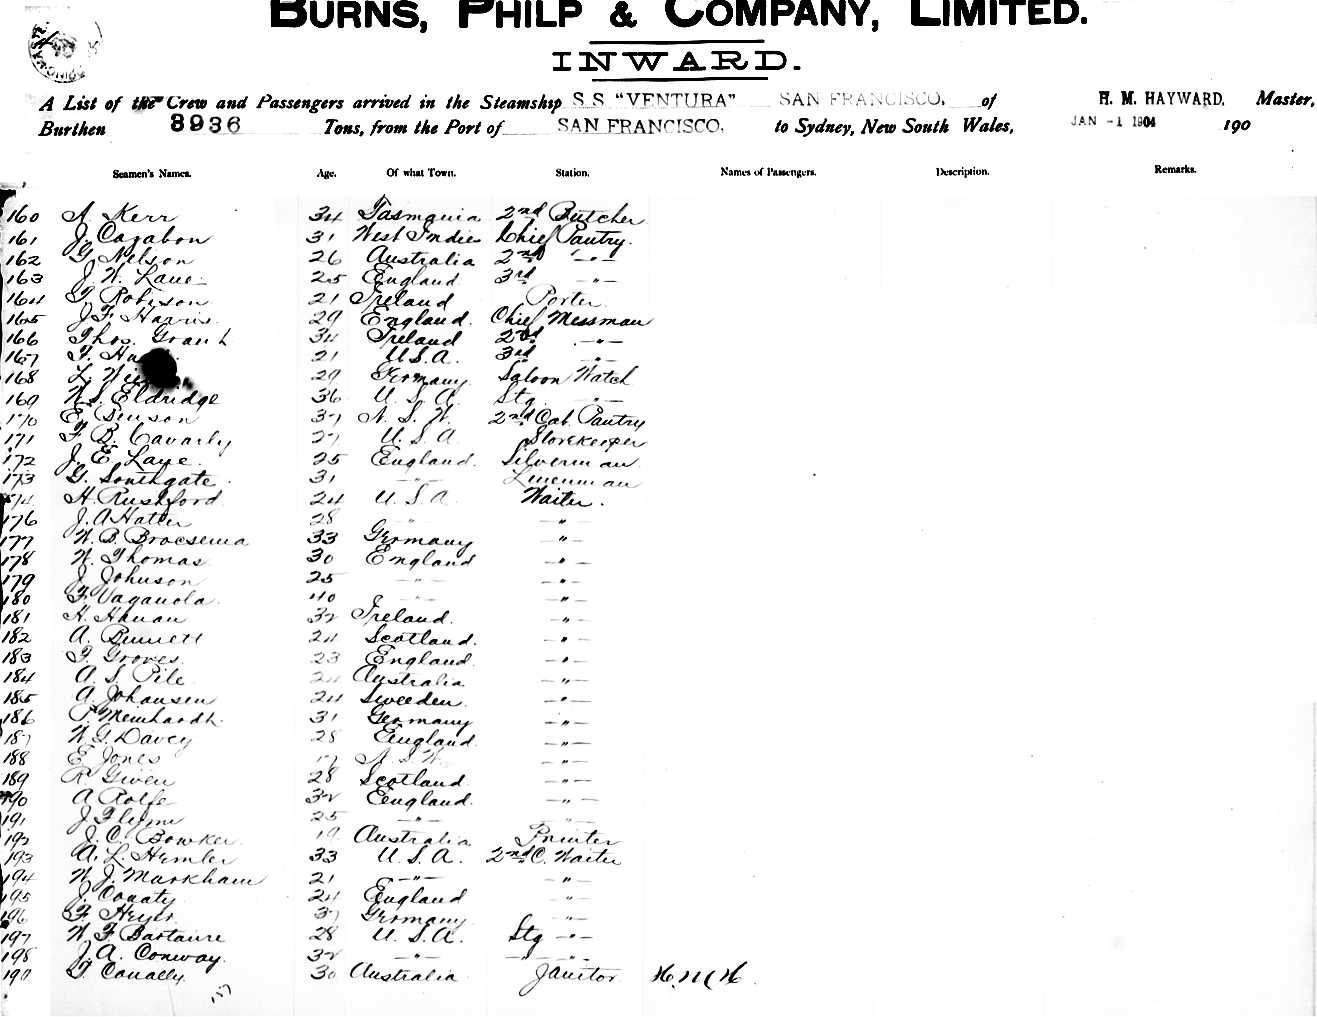 BURNS, PHILP & COMPANY, LIMITED.
INWARD.
A List of the Crew and Passengers arrived in the Steamship S S "VENTURA" SAN FRANCISCO, of H. M. HAYWARD, Master,
Burthen 3936 Tons, from the Port of SAN FRANCISCO, to Sydney, New South Wales, JAN -1 1904 190
Seamen's Names. Age. Of what Town. Station. Names of Passengers. Description. Remarks.
160 A. Kerr 34 Tasmania 2nd Butcher
161 J. Cazabon 31 West Indies Chief Pantry.
162 G. Nelson 26 Australia 2nd —"—
163 J. W. Lane 25 England 3rd —"—
164 T. Robison 21 Ireland Porter
165 J. F. Harris 29 England. Chief Messman
166 Thos. Grant 34 Ireland 2nd —"—
167 T. 21 U.S.A. 3rd —"—
168 L. 29 Germany Saloon Watch
169 W. S. Eldridge 36 U. S. A. Stg. —"—
170 E. Benson 37 N. S. W. 2nd Cab. Pantry
171 F. B. Cavarly 27 U. S. A Storekeeper
172 J. E. Laye. 25 England. Silverman
173 G. Southgate. 31 —"— Linenman
174 H. Rushford 24 U. S. A Waiter.
176 J. A. Hatter 28 —"— —"—
177 W. B. Brocsema 33 Germany —"—
178 W. Thomas 30 England —"—
179 J. Johnson 25 —"— —"—
180 F. Vaganola. 40 —"— —"—
181 H. Hanan 32 Ireland. —"—
182 A. Bennett 24 Scotland. —"—
183 T. Groves. 23 England. —"—
184 A. S. Pile 24 Australia —"—
185 A. Johansen 24 Sweeden. —"—
186 P. Meinhardt. 31 Germany —"—
187 W. G. Davey 28 England. —"—
188 E. Jones 17 N. S. W. —"—
189 R. Given 28 Scotland —"—
190 A. Rolfe 32 England. —"—
191 J. Flynn 25 —"— —"—
192 J. C. Bowker. 19 Australia Printer
193 A. L. Hemler 33 U. S. A. 2nd C. Waiter
194 W. J. Markham 21 —"— —"—
195 J. County 24 England —"—
196 F. Heyer 37 Germany. —"—
197 W. F. Bastaure 28 U. S. A. Stg —"—
198 J. A. Conway. 32 —"— —"— —"—
199 T. Conally. 30 Australia Janitor